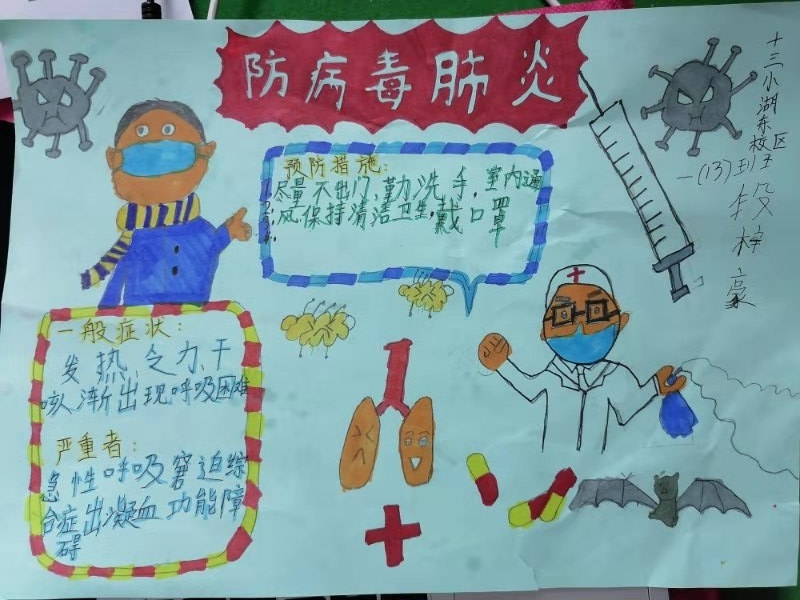 防病毒肺炎
十三小湖东校区
一(13)班
段梓豪
预防措施:
1.尽量不出门,勤洗手,室内通
2.风保持清洁卫生,戴口罩
一般症状:
发热、乏力、干
咳、渐出现呼吸困难
严重者:
急性呼吸窘迫综
合症出凝血功能障
碍